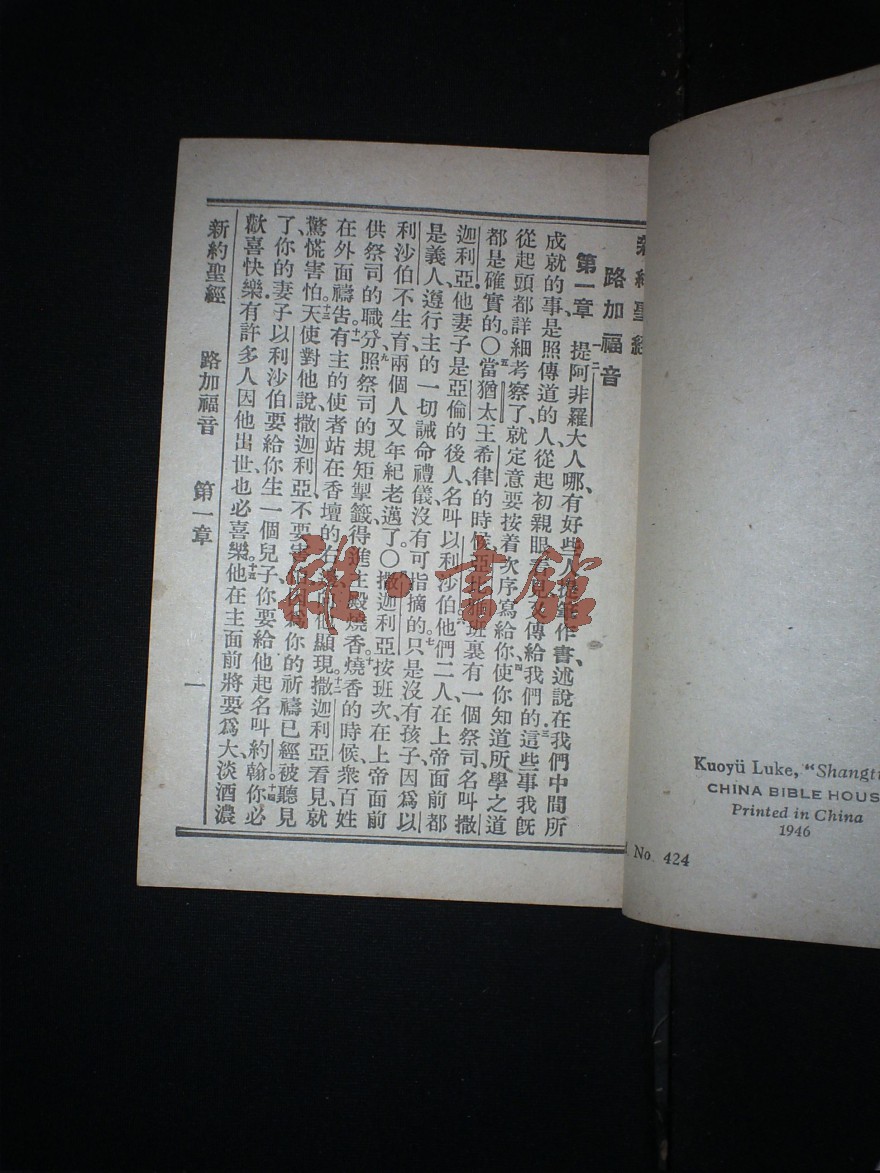 新約聖經
路加福音
第一章 一二提阿非羅大人哪、有好些人提筆作書、述說在我們中間所
成就的事、是照傳道的人、從起初親眼看見、又傳給我們的。三這些事我旣
從起頭都詳細考察了、就定意要按着次序寫給你、四使你知道所學之道
都是確實的。〇五當猶太王希律的時候、亞比雅班裏有一個祭司、名叫撒
迦利亞、他妻子是亞倫的後人、名叫以利沙伯。六他們二人、在上帝面前都
是義人、遵行主的一切誡命禮儀、沒有可指摘的。七只是沒有孩子、因爲以
利沙伯不生育、兩個人又年紀老邁了。〇八撒迦利亞按班次、在上帝面前
供祭司的職分、九照祭司的規矩掣籤、得進主殿燒香。十燒香的時候、衆百姓
在外面禱告。十一有主的使者站在香壇的右邊、向他顯現。十二撒迦利亞看見、就
驚慌害怕。十三天使對他說、撒迦利亞、不要害怕、因爲你的祈禱已經被聽見
了、你的妻子以利沙伯要給你生一個兒子、你要給他起名叫約翰。十四你必
歡喜快樂、有許多人因他出世、也必喜樂。十五他在主面前將要爲大、淡酒濃
新約聖經 路加福音 第一章 一
雜·書館
Kuoyü Luke, "Shangti
CHINA BIBLE HOUS
Printed in China
1946
No. 424